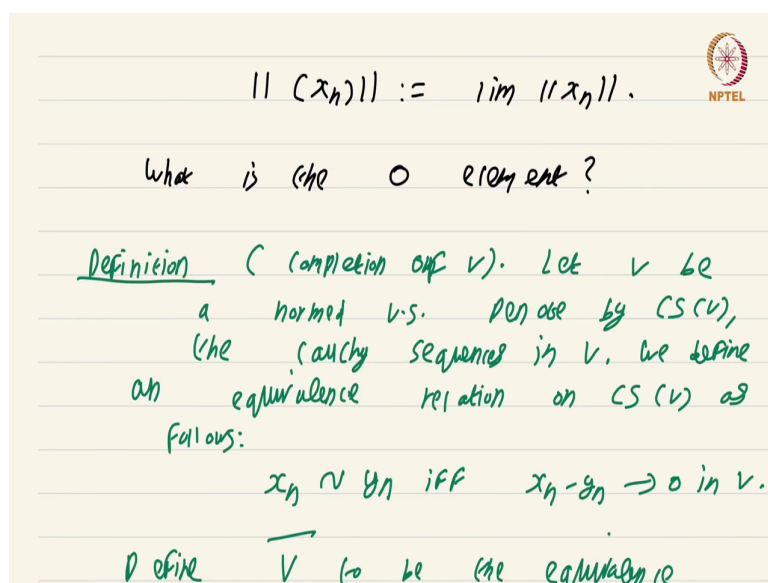 || (xₙ)|| := lim ||xₙ||.
NPTEL
What is the 0 element?
Definition (completion of V). Let V be
a normed v.s. Denote by CS(V),
the Cauchy sequences in V. We define
an equivalence relation on CS(V) as
follows:
xₙ ~ yₙ iff xₙ-yₙ → 0 in V.
Define V̅ to be the equivalence